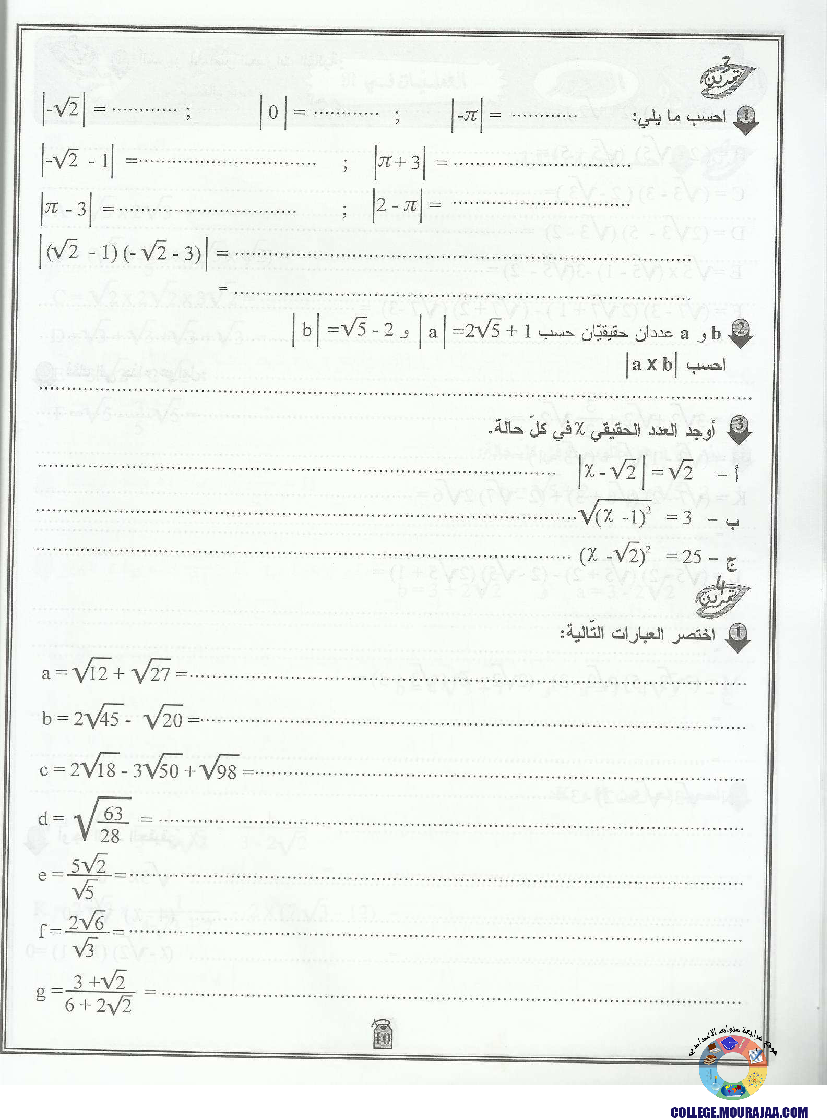 تمرين 2
1 احسب ما يلي: |-π| = ............ ; |0| = ............ ; |-√2| = ............ ;
|-√2 - 1| = .............................. ; |π + 3| = ..............................
|π - 3| = .............................. ; |2 - π| = ..............................
|(√2 - 1) (-√2 - 3)| = ..............................
= ..............................
2 b و a عددان حقيقيّان حسب |a| = 2√5 + 1 و |b| = √5 - 2
احسب |a x b|
..............................
3 أوجد العدد الحقيقي x في كلّ حالة.
أ - |x - √2| = √2 ..............................
ب - √(x - 1)² = 3 ..............................
ج - (x - √2)² = 25 ..............................
تمرين 4
1 اختصر العبارات التّالية:
a = √12 + √27 = ..............................
b = 2√45 - √20 = ..............................
c = 2√18 - 3√50 + √98 = ..............................
d = √(63/28) = ..............................
e = 5√2/√5 = ..............................
f = 2√6/√3 = ..............................
g = (3 + √2)/(6 + 2√2) = ..............................
10
موقع مراجعة
COLLEGE.MOURAJAA.COM